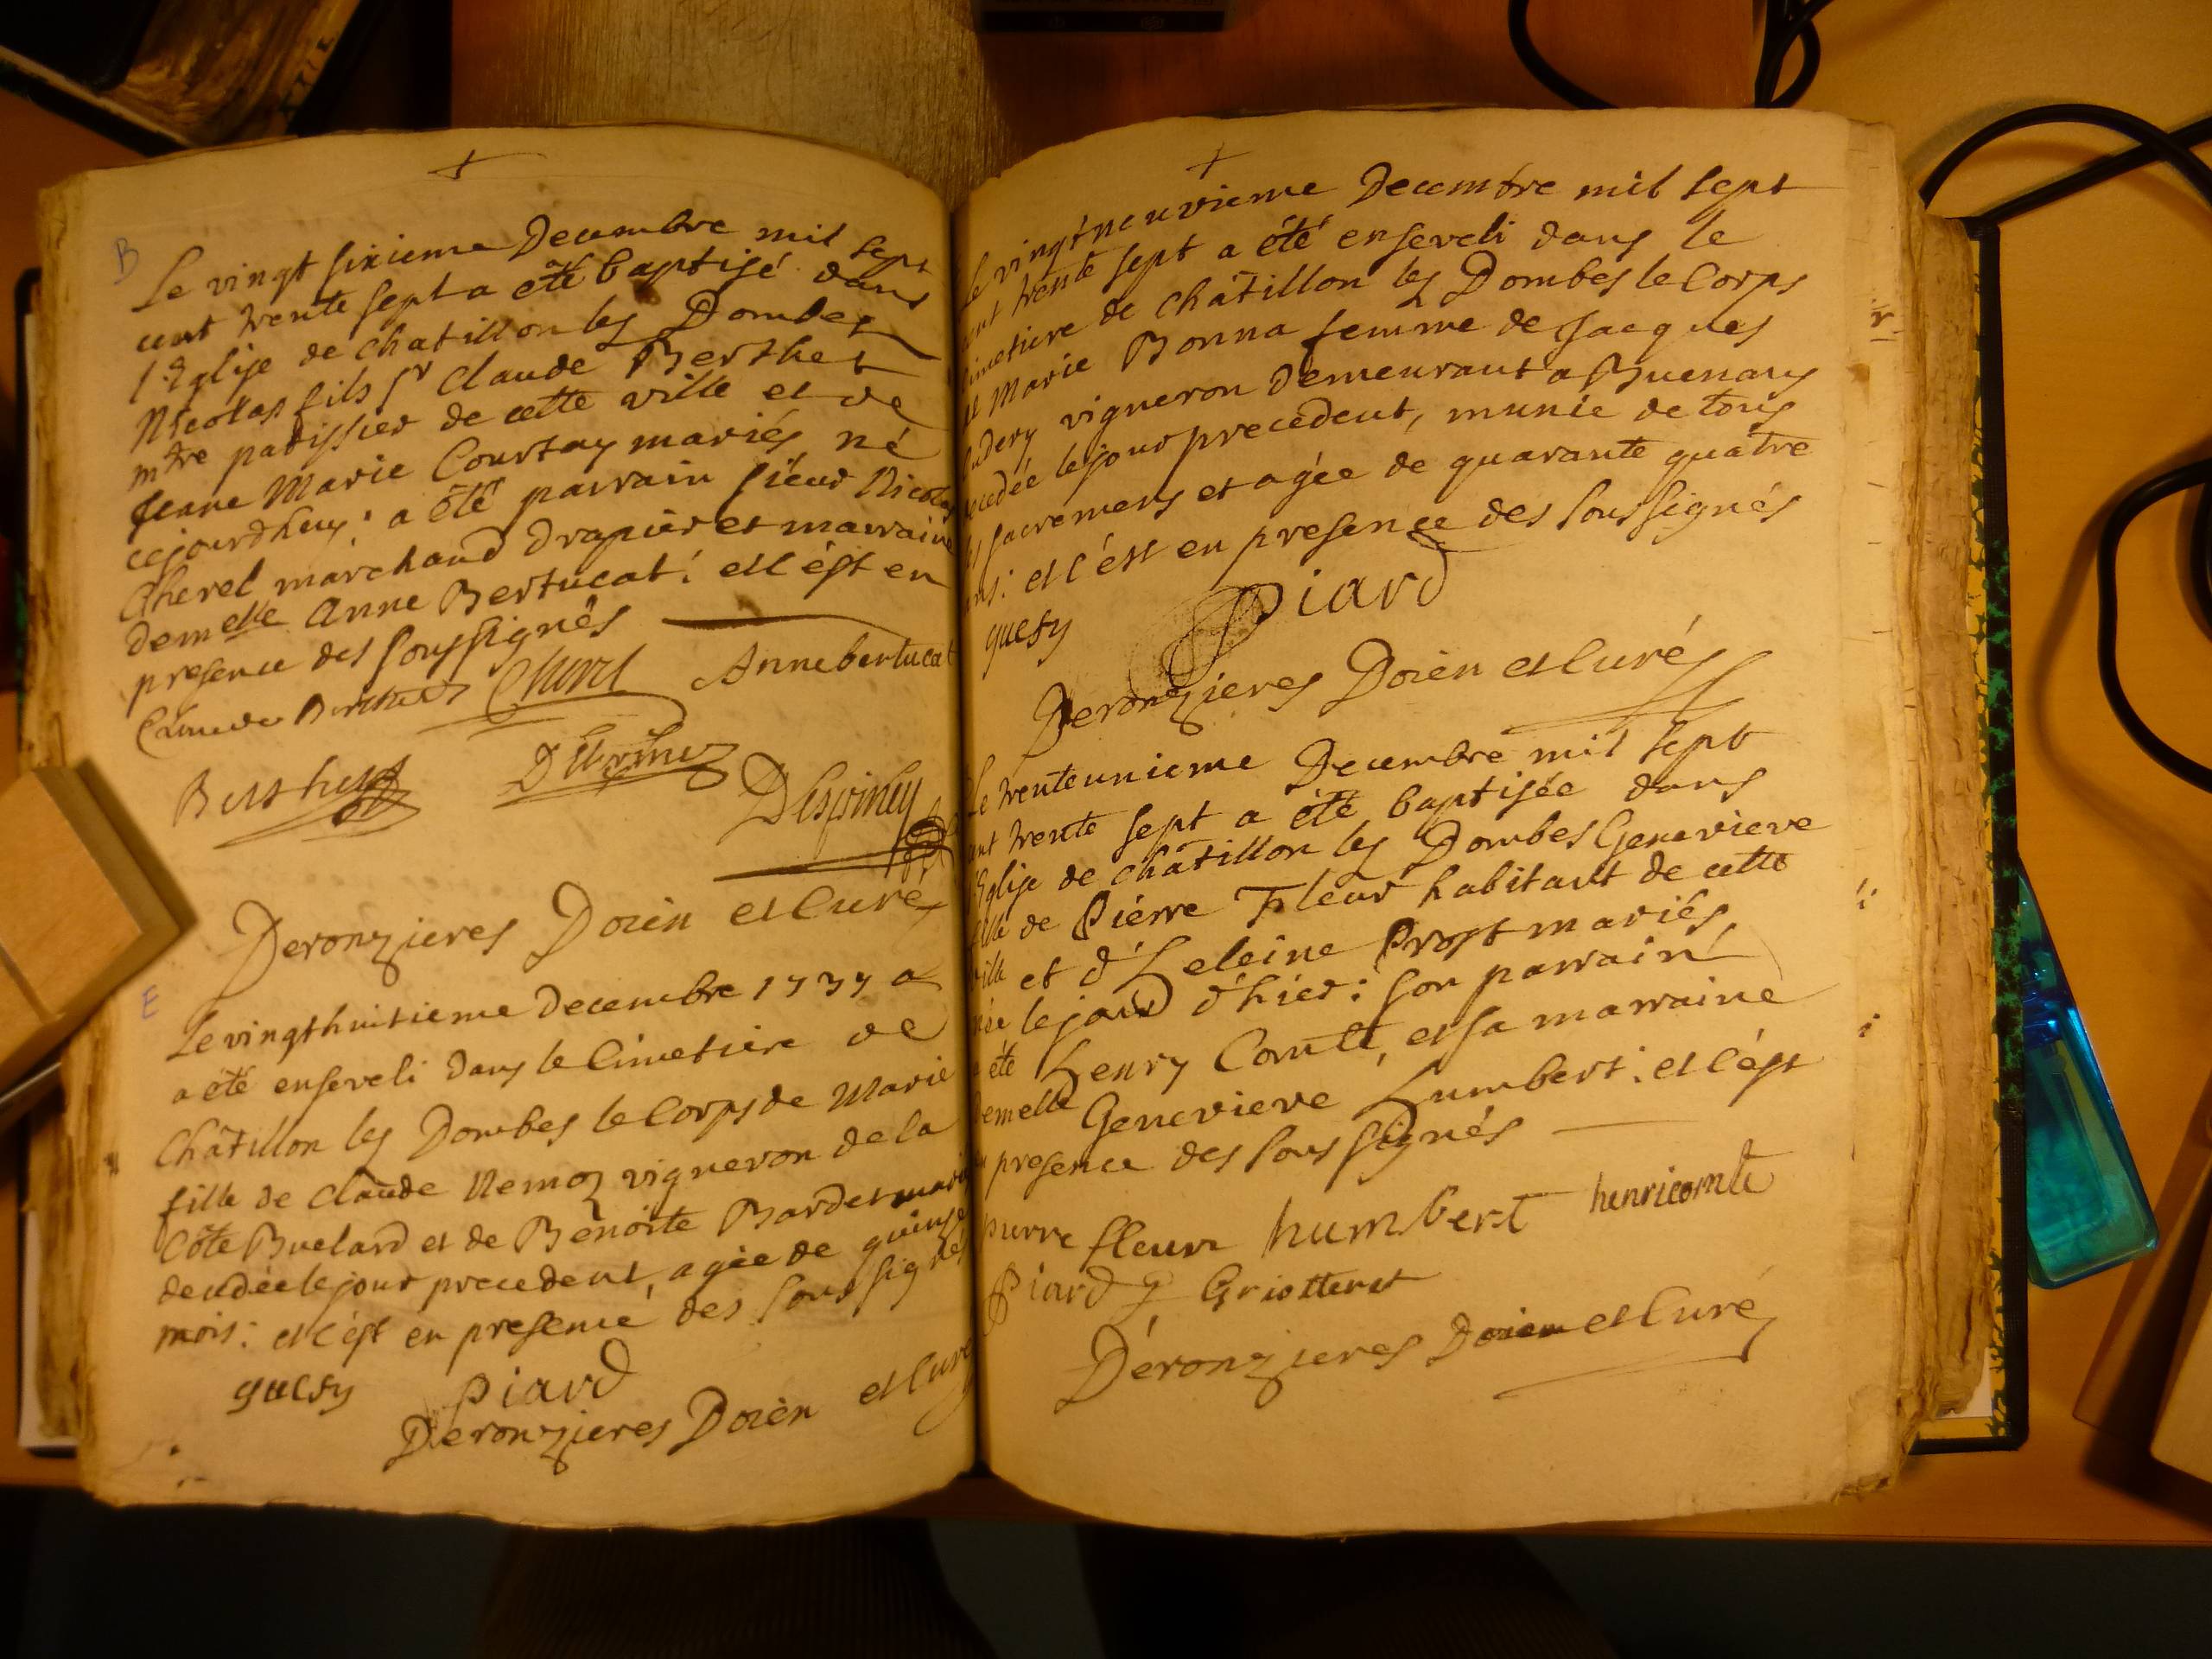 B
Le vingt sixieme Decembre mil sept
cent trente sept a été baptisé dans
l'Eglise de chatillon les Dombes
Nicolas fils sr Claude Berthet
mtre patissier de cette ville et de
Jeane Marie Courtay mariés né
cejourdhuy: a été parrain sieur Nicolas
Cherel marchand Drapier et marraine
demelle Anne Bertucat: et c'est en
presence des soussignés
Claude Berthet Cherel Anne bertucat
Berthet
Despiney
Deronzieres Doien et Curé
E
Le vingthuitieme Decembre 1737 a
a été enseveli dans le Cimetiere de
Châtillon les Dombes le Corps de Marie
fille de Claude Nemoz vigneron de la
Côte Buelard et de Benoite Bardet mariés
decedée le jour precedent, agée de quinze
mois: et c'est en presence des soussignés
guesy Piard
Deronzieres Doien et Curé
Le vingtneuvieme Decembre mil sept
cent trente sept a été enseveli dans le
cimetiere de châtillon les Dombes le Corps
de Marie Bonna femme de Jacques
vigneron demeurant a Buenans
decedée le jour precedent, munie de tous
les sacremens et agée de quarante quatre
ans: et c'est en presence des soussignés
guesy Piard
Deronzieres Doien et Curé
Le trenteunieme Decembre mil sept
cent trente sept a été baptisée dans
l'Eglise de châtillon les Dombes Genevieve
fille de Pierre Fleur habitant de cette
ville et d'heleine Prost mariés
née le jour d'hier: son parrain
a été henry Comte, et sa marraine
demelle Genevieve humbert: et c'est
en presence des soussignés
pierre fleur humbert henricomte
Piard Griotteret
Déronzieres Doien et Curé